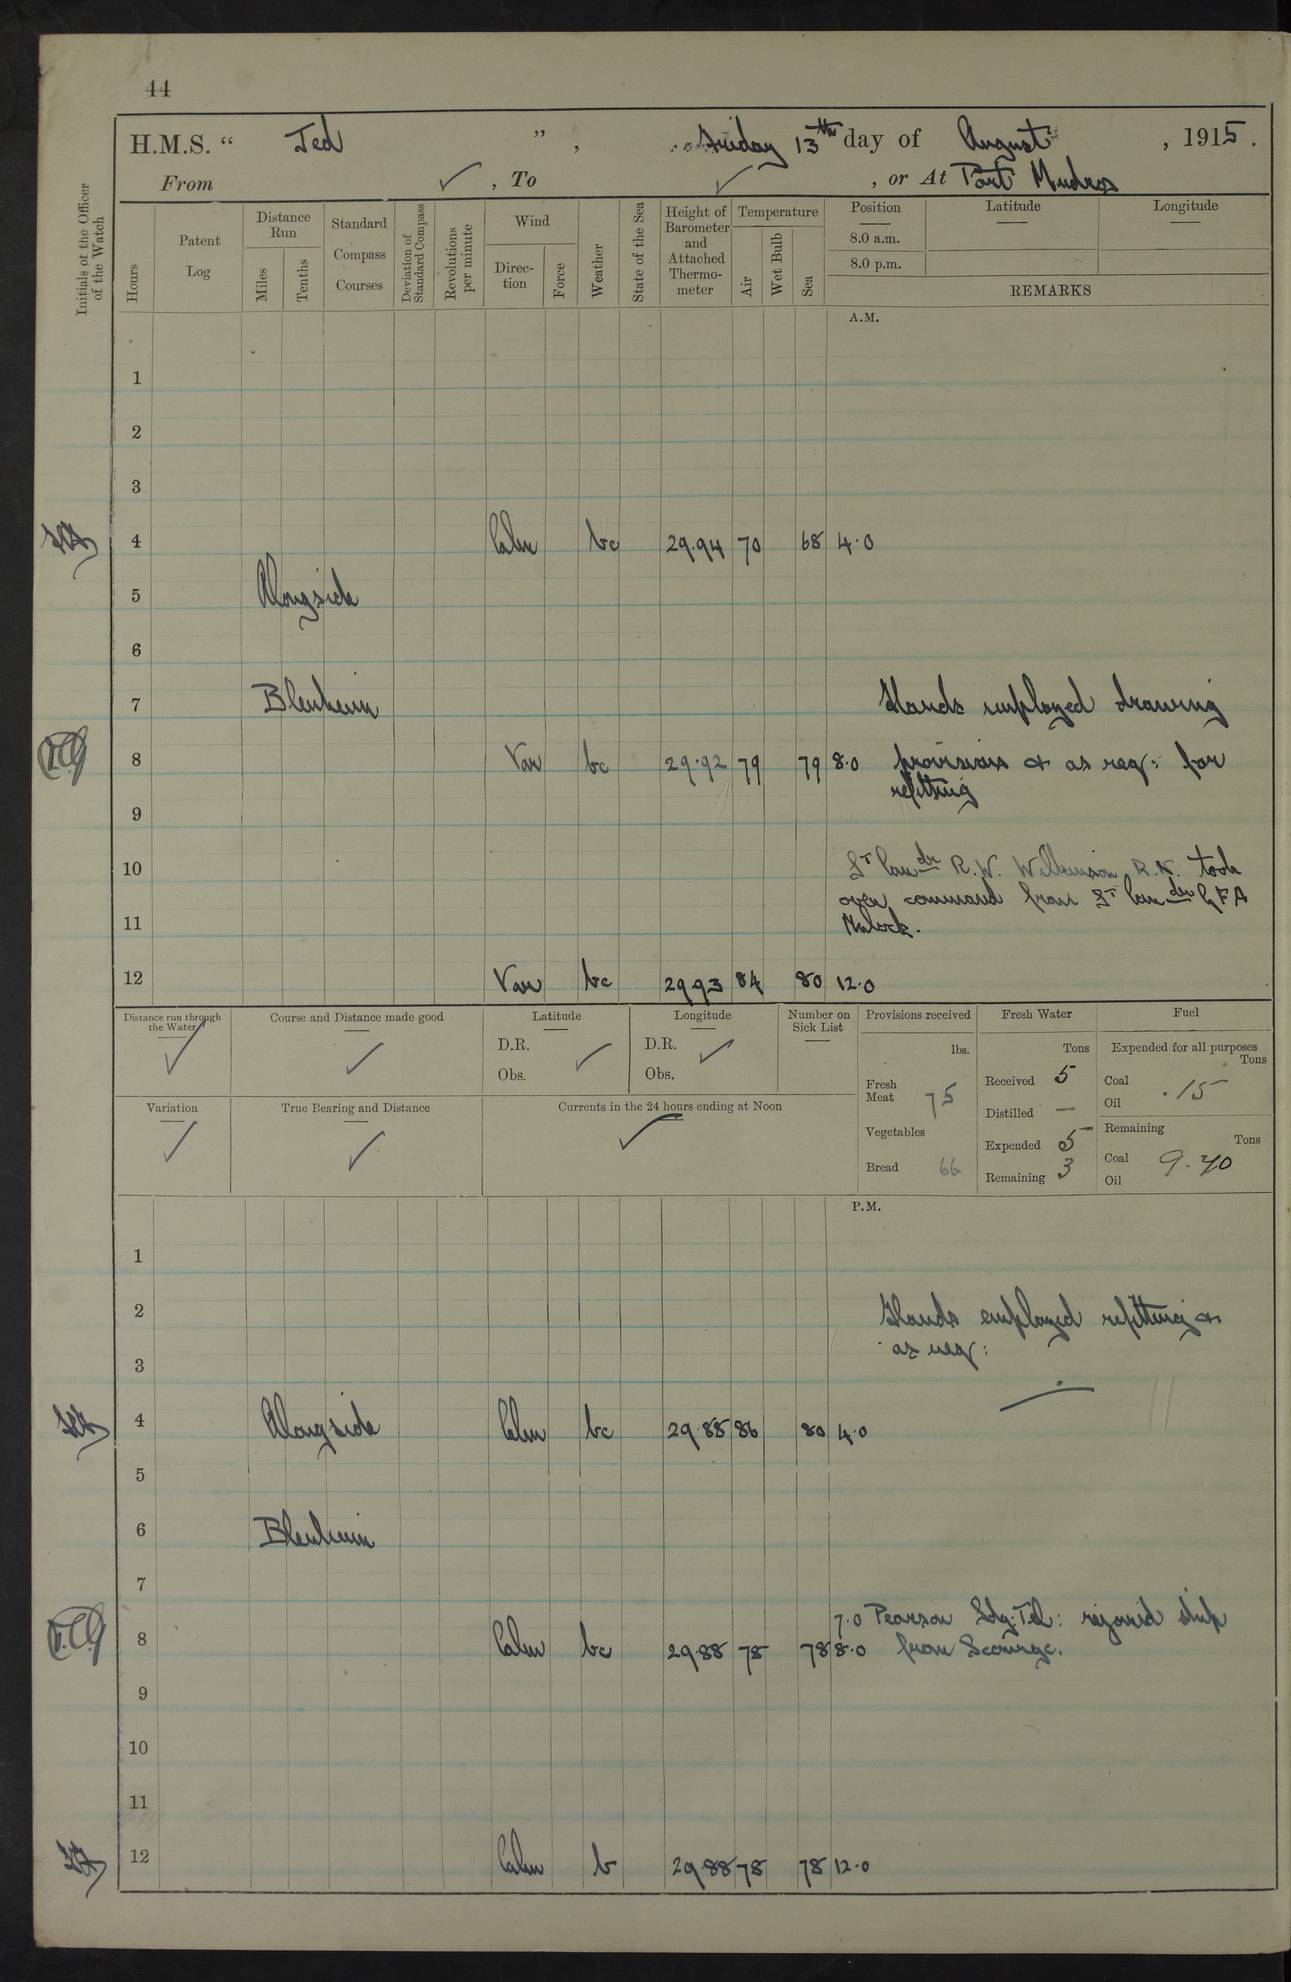 44
H.M.S. “ Jed ”, Friday 13th day of August, 1915.
From ✓, To ✓, or At Port Mudros
Initials of the Officer of the Watch
Hours
Patent Log
Distance Run
Miles
Tenths
Standard Compass Courses
Deviation of Standard Compass
Revolutions per minute
Wind
Direc-tion
Force
Weather
State of the Sea
Height of Barometer and Attached Thermo-meter
Temperature
Air
Wet Bulb
Sea
Position
8.0 a.m.
8.0 p.m.
Latitude
Longitude
REMARKS
A.M.
1
2
3
4 Calm bc 29.94 70 68 4.0
5 Alongside
6
7 Blenheim Hands employed drawing
8 Var bc 29.92 79 79 8.0 provisions & as req: for
refitting
9
10 Lt Comdr R.W. Wilkinson R.N. took
over command from Lt Comdr G F A
11 Mulock.
12 Var bc 29 93 84 80 12.0
Distance run through the Water ✓
Course and Distance made good ✓
Latitude
D.R. ✓
Obs.
Longitude
D.R. ✓
Obs.
Number on Sick List
Provisions received
lbs.
Fresh Meat 75
Vegetables
Bread 66
Fresh Water
Tons
Received 5
Distilled —
Expended 5
Remaining 3
Fuel
Expended for all purposes
Tons
Coal
Oil .15
Remaining
Tons
Coal 9.40
Oil
Variation ✓
True Bearing and Distance ✓
Currents in the 24 hours ending at Noon ✓
P.M.
1
2 Hands employed refitting &
as req:
3
4 Alongside Calm bc 29.88 86 80 4.0
5
6 Blenheim
7
7.0 Pearson Ldg. Tel: rejoined ship
8 Calm bc 29.88 78 78 8.0 from Scourge.
9
10
11
12 Calm b 29.88 78 78 12.0